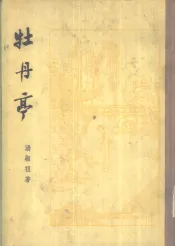 牡丹亭
湯顯祖著